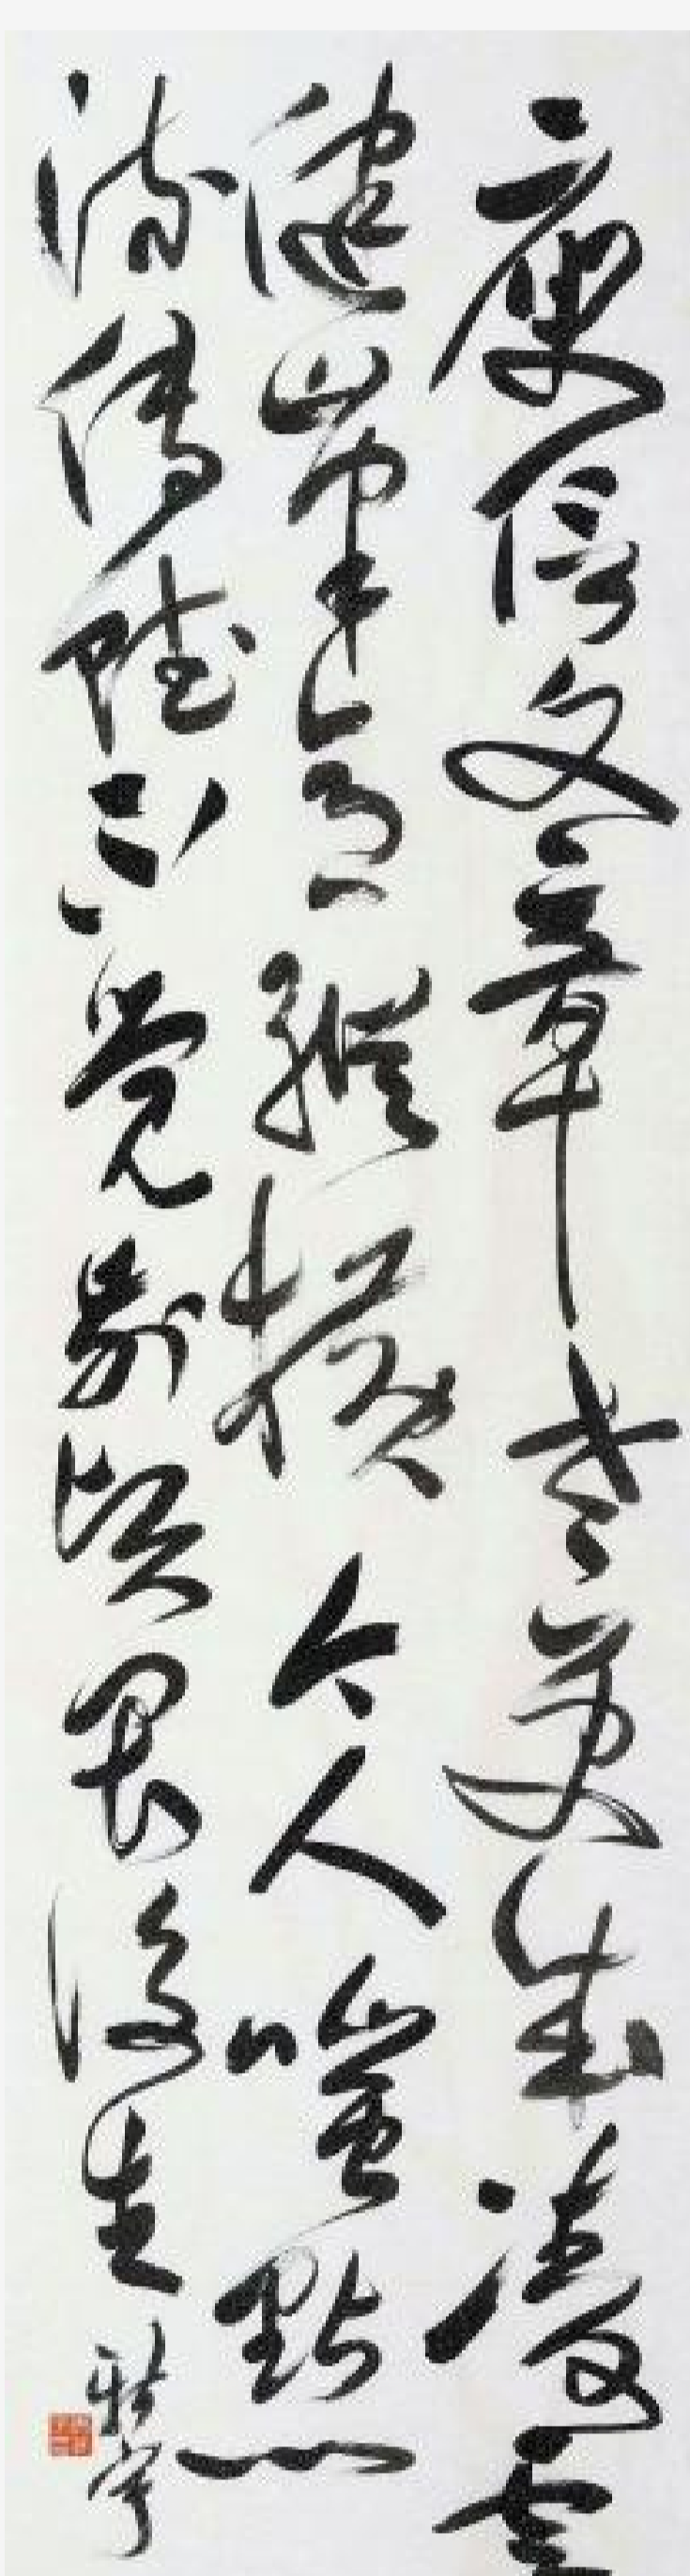 庾信文章老更成凌雲
健筆意縱橫今人嗤點
流傳賦不覺前賢畏後生